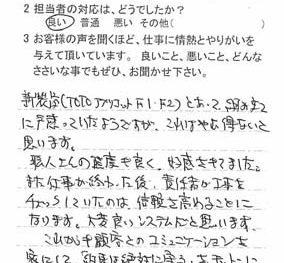 2 担当者の対応は、どうでしたか?
良い 普通 悪い その他(
3 お客様の声を聞くほど、仕事に情熱とやりがいを
与えて頂いています。 良いこと、悪いこと、どんな
ささいな事でもぜひ、お聞かせ下さい。
新製品(TOTOアプリコットF1・F2)とあって、組み立て
に戸惑っていたようですが、これはやむ得ないと
思います。
職人さんの態度も良く、好感をもてました。
また仕事が終わった後、責任者が工事を
チェックしていたのは、信頼を高めることに
なります。大変良いシステムだと思います。
これからも顧客とのコミュニケーションを
密にして